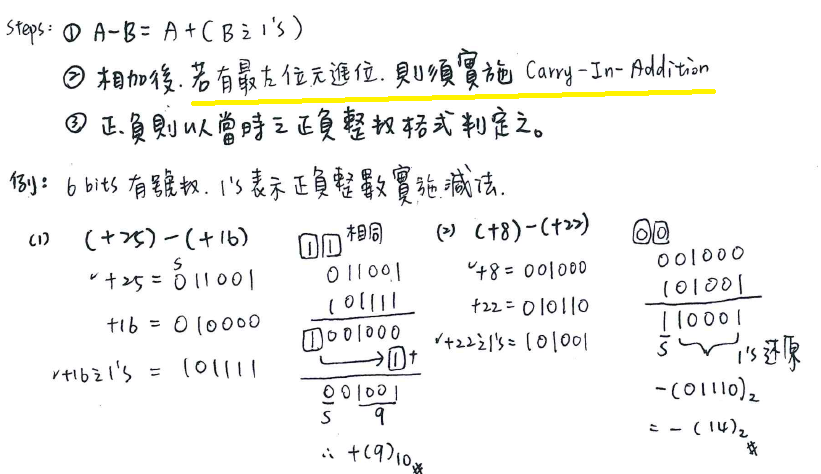 Steps: ① A-B = A + ( B之1's )
② 相加後. 若有最左位元進位. 則須實施 Carry-In-Addition
③ 正.負則以當時之正負整數格式判定之。
例: 6 bits 有號數. 1's 表示正負整數實施減法.
(1) (+25) - (+16)
S
✓+25 = 011001
+16 = 010000
✓+16之1's = 101111
11 相同
011001
101111
1001000
1+
001001
S 9
∴ +(9)10 #
(2) (+8) - (+22)
✓+8 = 001000
+22 = 010110
✓+22之1's = 101001
00
001000
101001
110001
S 1's 还原
-(01110)2
= -(14)2 #